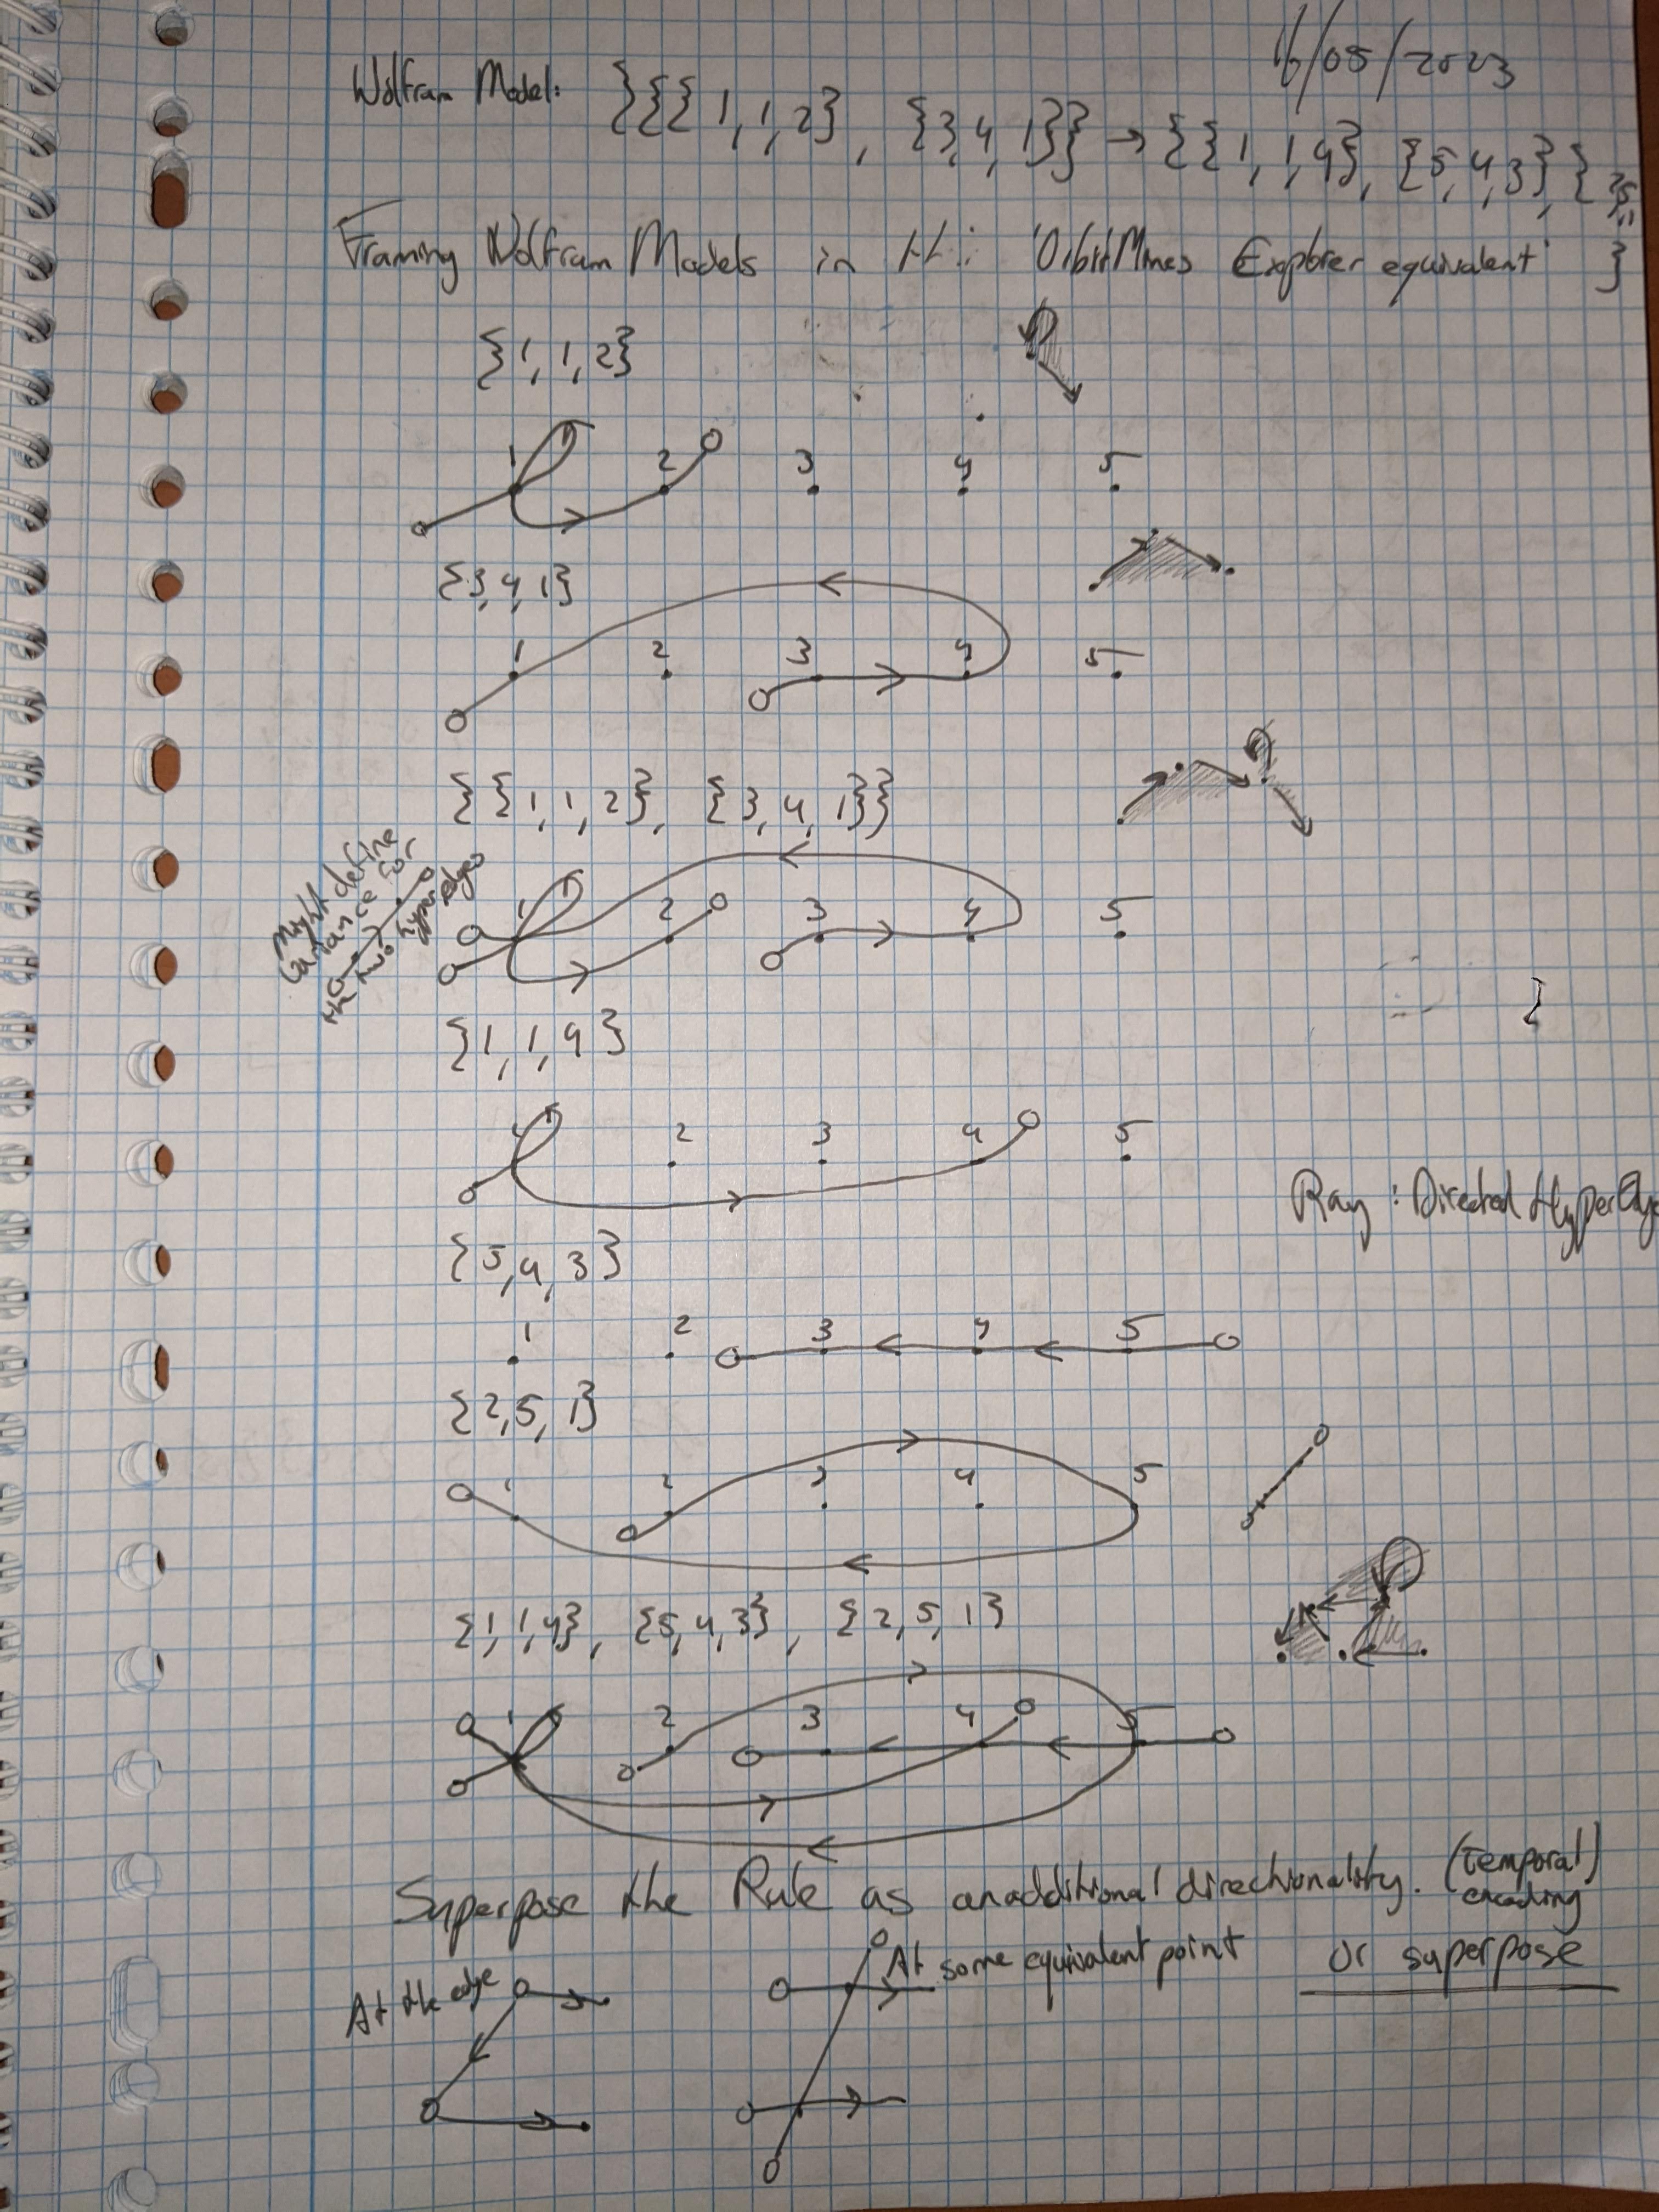 16/05/2023
Wolfram Model: {{{1,1,2}, {3,4,1}} → {{1,1,4}, {5,4,3}, {2,5,1}
}
Framing Wolfram Models in the 'OrbitMines Explorer equivalent'
{1,1,2}
1 2 3 4 5
{3,4,1}
1 2 3 4 5
{{1,1,2}, {3,4,1}}
Might define
variance for
the two hyperedges
1 2 3 4 5
{1,1,4}
1 2 3 4 5
Ray : Directed HyperEdge
{5,4,3}
1 2 3 4 5
{2,5,1}
1 2 3 4 5
{1,1,4}, {5,4,3}, {2,5,1}
1 2 3 4 5
Superpose the Rule as an additional directionality. (temporal)
encoding
At the edge
At some equivalent point
or superpose